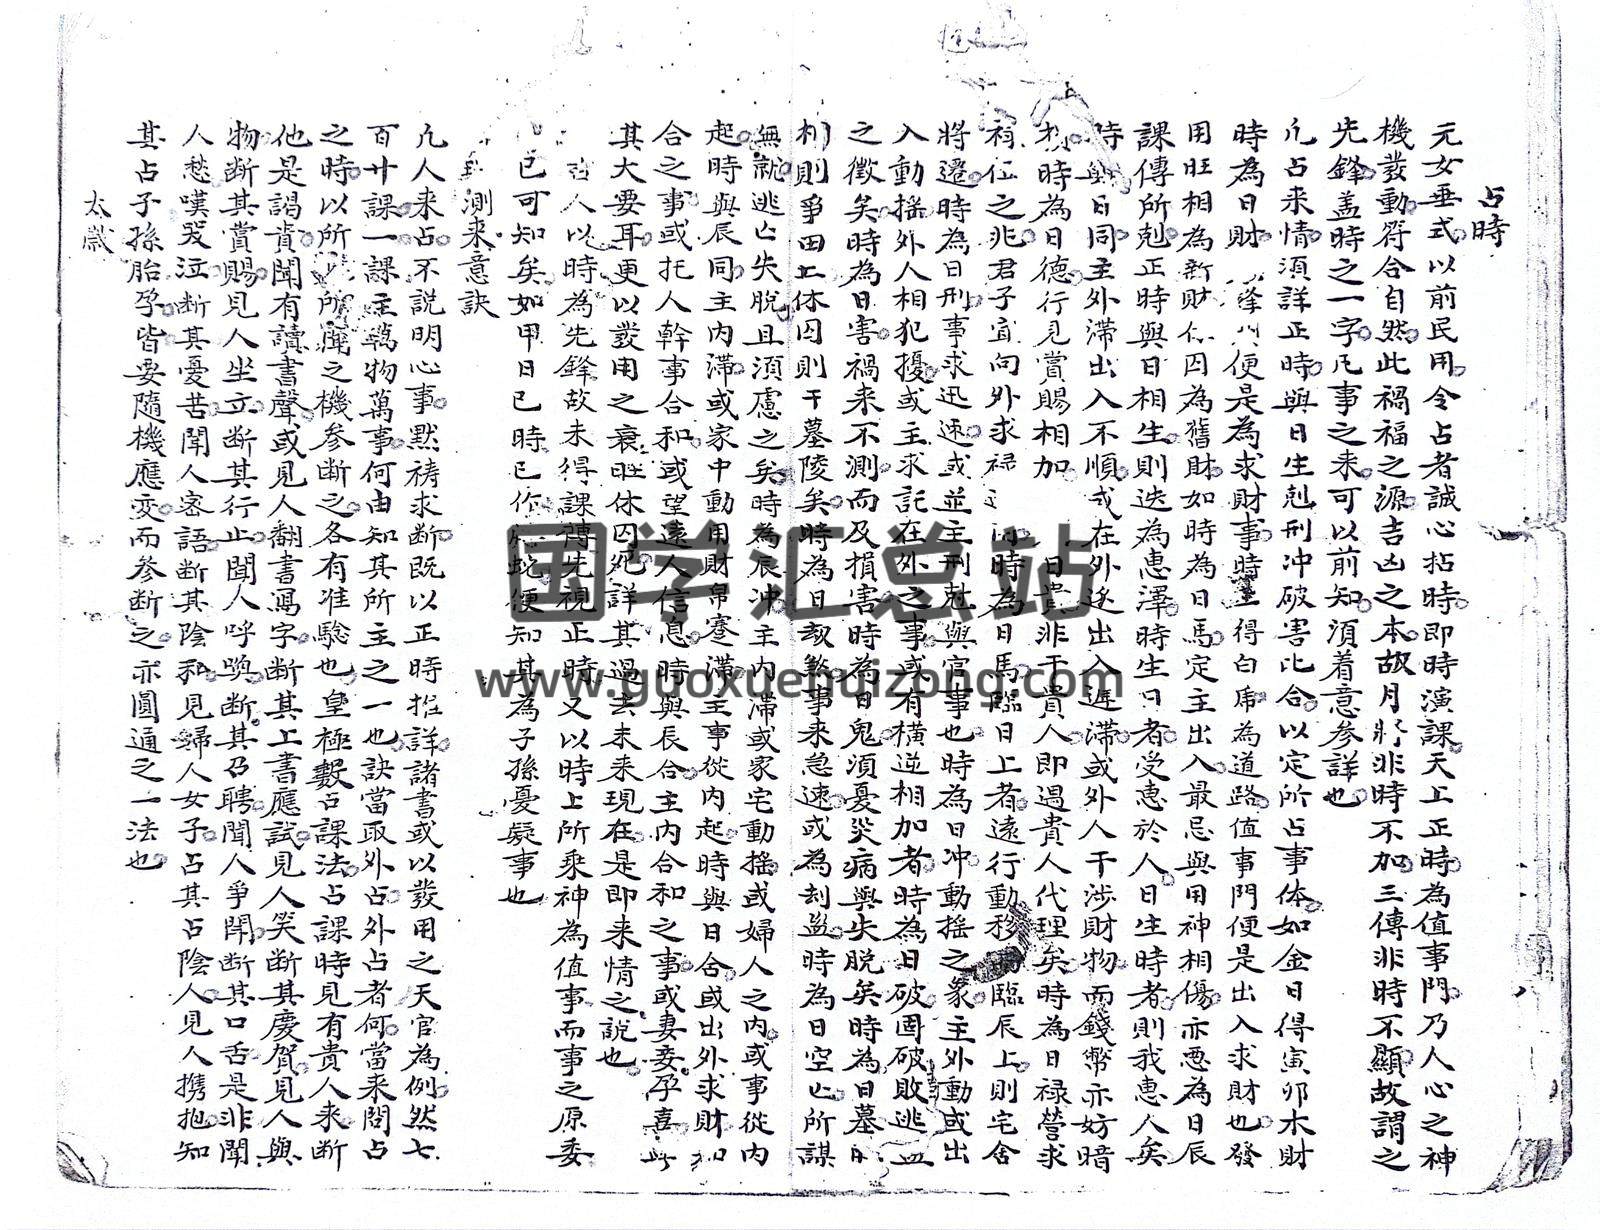 占時
元女垂式以前民用令占者誠心拈時即時演課天上正時為值事門乃人心之神
機發動符合自然此禍福之源吉凶之本故月將非時不加三傳非時不顯故謂之
先鋒盖時之一字凡事之来可以前知須着意参詳也
凡占来情須詳正時與日生剋刑冲破害比合以定所占事体如金日得寅卯木財
時為日財 便是為求財事時 得白虎為道路值事門便是出入求財也發
用旺相為新財 囚為舊財如時為日馬定主出入最忌與用神相傷亦悪為日辰
課傳所剋正時與日相生則迭為惠澤時生日者受惠於人日生時者則我惠人矣
時 日同主外滞出入不順或在外 出入遲滞或外人干涉財物而錢幣亦妨暗
時為日德行見賞賜相加 日貴非干貴人即遇貴人代理矣時為日禄營求
之兆君子宜向外求禄 時為日馬臨日上者遠行動移 臨辰上則宅舎
將遷時為日刑事求迅速或並主刑剋與官事也時為日冲動揺之象主外動或出
入動揺外人相犯擾或主求託在外之事或有横逆相加者時為日破固破敗逃亡
之徵矣時為日害禍来不測而及損害時為日鬼須憂災病與失脱矣時為日墓
則爭田土休囚則干墓陵矣時為日劫煞事来急速或為刦盗時為日空亡所謀
無就逃亡失脱且須慮之矣時為辰冲主内滞或家宅動揺或婦人之内或事從内
起時與辰同主内滞或家中動用財帛蹇滞主事從内起時與日合或出外求財
合之事或托人幹事合和或望遠人信息時與辰合主内合和之事或妻妾孕喜
其大要耳更以發用之衰旺休囚死詳其過去未来現在是即来情之說也
人以時為先鋒故未得課傳先視正時又以時上所乘神為值事而事之原委
已可知矣如甲日巳時巳作 蛇便知其為子孫憂疑事也
測来意訣
凡人来占不説明心事黙禱求断既以正時推詳諸書或以發用之天官為例然七
百廿課一課主萬物萬事何由知其所主之一也訣當取外占外占者何當来問占
之時以所 所 之機参断之各有准驗也皇極數占課法占課時見有貴人来断
他是謁貴聞有讀書聲或見人翻書寫字断其上書應試見人笑断其慶賀見人與
物断其賞賜見人坐立断其行止聞人呼喚断其召聘聞人爭鬧断其口舌是非聞
人愁嘆哭泣断其憂苦聞人密語断其陰私見婦人女子占其占陰人見人携抱知
其占子孫胎孕皆要隨機應变而参断之亦圓通之一法也
太歲
国学汇总站
www.guoxuehuizong.com